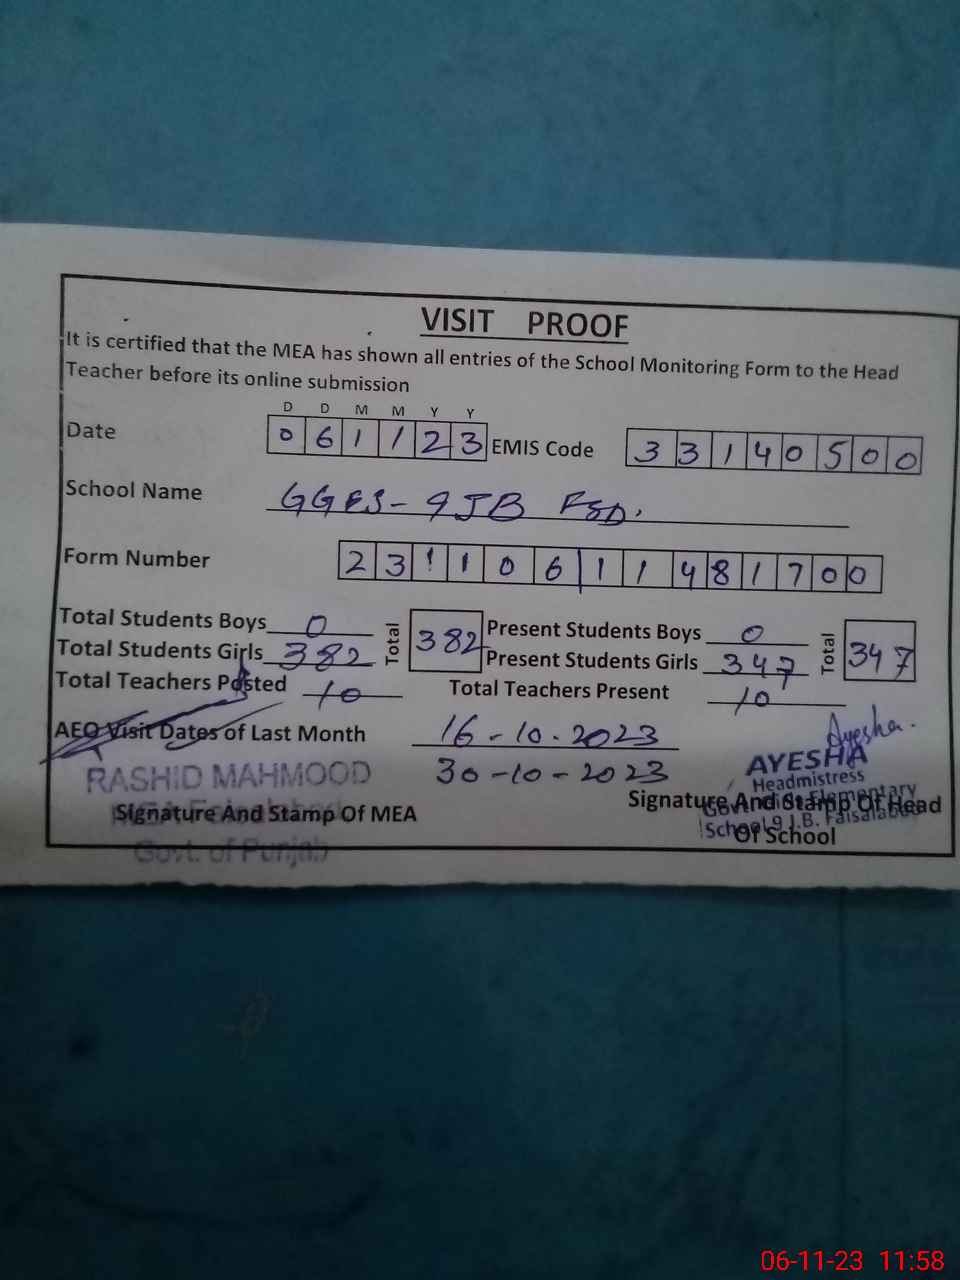 VISIT PROOF
It is certified that the MEA has shown all entries of the School Monitoring Form to the Head
Teacher before its online submission
D D M M Y Y
Date 0 6 1 1 2 3 EMIS Code 3 3 1 4 0 5 0 0
School Name GGES- 9JB FSD.
Form Number 2 3 1 1 0 6 1 1 4 8 1 7 0 0
Total Students Boys 0 Total 382 Present Students Boys 0 Total 347
Total Students Girls 382 Present Students Girls 347
Total Teachers Posted 10 Total Teachers Present 10
AEO Visit Dates of Last Month 16-10-2023
30-10-2023
Ayesha.
RASHID MAHMOOD
Govt. of Punjab
Signature And Stamp Of MEA
AYESHA
Headmistress
Elementary
School 9 J.B. Faisalabad
Signature And Stamp Of Head
Of School
06-11-23 11:58